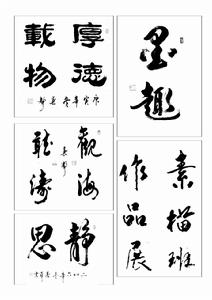 厚德
載物
墨趣
觀海
聽濤
靜思
素描班
作品展